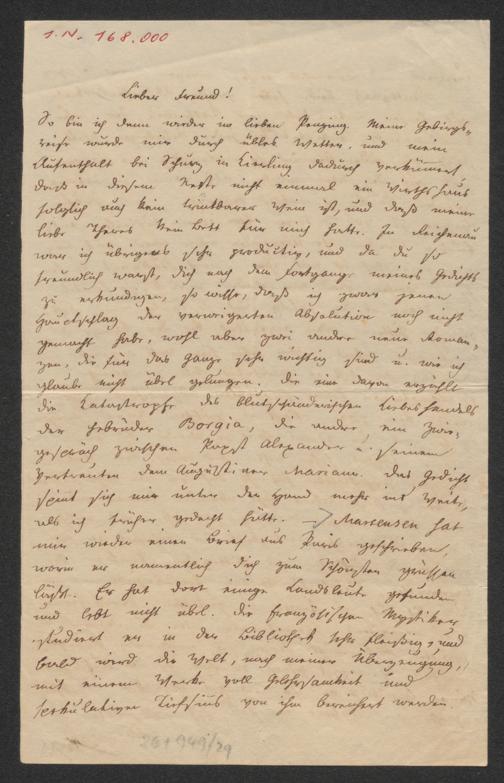 I.N. 168.000
Lieber Freund!
So bin ich denn wieder im lieben Penzing. Meine Gebirgs-
reise wurde mir durch übles Wetter, und mein
Aufenthalt bei Schurz in Kierling dadurch verkümmert,
daß in diesem Neste nicht einmal ein Wirthshaus
folglich auch kein trinkbarer Wein ist, und daß meine
liebe Theres kein Bett für mich hatte. In Reichenau
war ich übrigens sehr productiv, und da du so
freundlich warst, dich nach dem Fortgange meines Gedichts
zu erkundigen, so wisse, daß ich zwar jenen
Hauptschlag der verweigerten Absolution noch nicht
gemacht habe, wohl aber zwei andre neue Roman-
zen, die für das Ganze sehr wichtig sind u. wie ich
glaube nicht übel gelungen. Die eine davon erzählt
die Katastrophe des blutschänderischen Liebeshandels
der Gebrüder Borgia, die andre ein Zwie-
gespräch zwischen Papst Alexander u. seinem
Vertrauten dem Augustiner Mariano. Das Gedicht
spint sich mir unter der Hand mehr ins Weite,
als ich früher gedacht hätte. – Martensen hat
mir wieder einen Brief aus Paris geschrieben,
worin er namentlich dich zum Schönsten grüssen
läßt. Er hat dort einige Landsleute gefunden
und lebt nicht übel. Die französischen Mystiker
studiert er in der Bibliothek sehr fleissig, und
bald wird die Welt, nach meiner Überzeugung,
mit einem Werke voll Gelehrsamkeit und
spekulativen Tiefsinns von ihm bereichert werden.